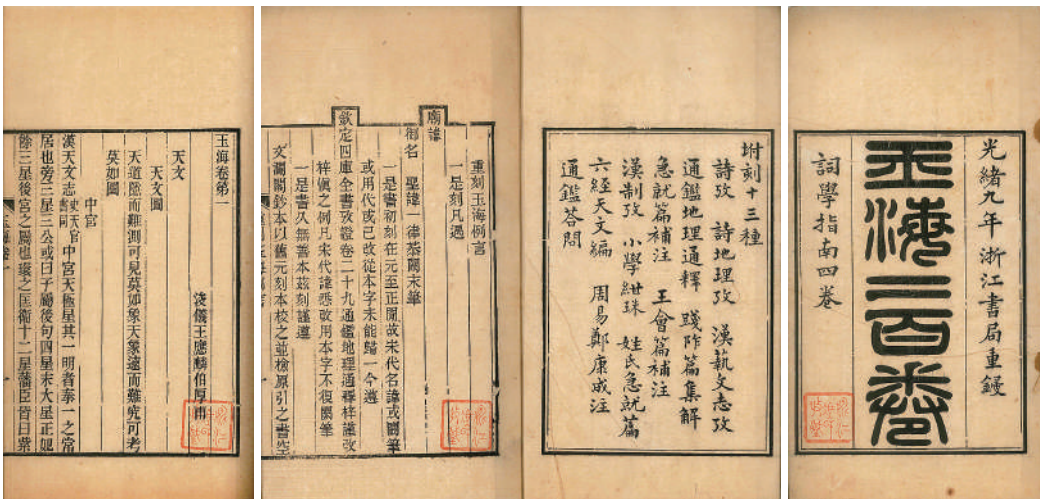 光緒九年浙江書局重鋟
玉海二百卷
詞學指南四卷
坿刻十三種
詩攷 詩地理攷 漢藝文志攷
通鑑地理通釋 踐阼篇集解
急就篇補注 王會篇補注
漢制攷 小學紺珠 姓氏急就篇
六經天文編 周易鄭康成注
通鑑答問
重刻玉海例言
一是刻凡遇
廟諱
御名 聖諱一律恭闕末筆
一是書初刻在元至正閒故宋代名諱或闕筆
或用代或已改從本字未能歸一今遵
欽定四庫全書攷證卷二十九通鑑地理通釋梓謹改
梓愼之例凡宋代諱悉改用本字不復闕筆
一是書久無善本茲刻謹遵
文瀾閣鈔本以舊元刻本校之並檢原引之書
玉海卷第一
浚儀王應麟伯厚甫
天文
天文圖
天道隱而難測可見莫如象天象遠而難究可考
莫如圖
中宮
漢天文志史天官書同中宮天極星其一明者泰一之常
居也旁三星三公或曰子屬後句四星末大星正妃
餘三星後宮之屬也環之匡衛十二星藩臣皆曰紫